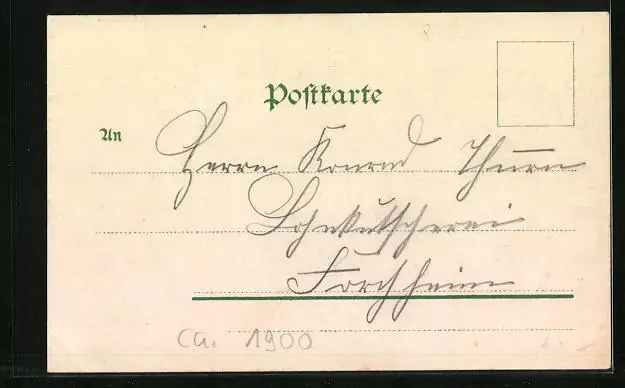 Postkarte
An
Herrn Konrad Thurn
Lohnkutscherei
Forchheim
ca. 1900